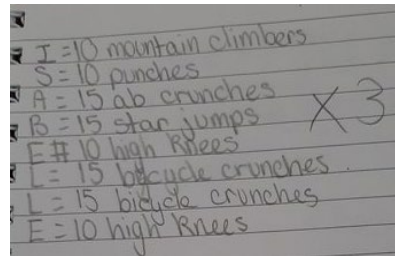 I = 10 mountain climbers
S = 10 punches
A = 15 ab crunches
B = 15 star jumps
E # 10 high knees
L = 15 bicycle crunches.
L = 15 bicycle crunches
E = 10 high knees
X3